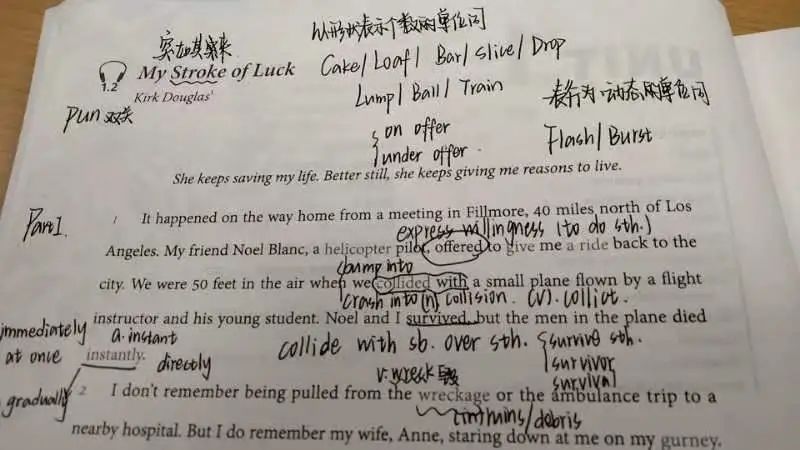 以形状表示个数的单位词
Cake/ Loaf/ Bar/ Slice/ Drop
Lump/ Ball/ Train
表行为、动态的单位词
Flash/ Burst
on offer
under offer
1.2
My Stroke of Luck
Kirk Douglas¹
Pun 双关
She keeps saving my life. Better still, she keeps giving me reasons to live.
Part 1.
1 It happened on the way home from a meeting in Fillmore, 40 miles north of Los
express willingness (to do sth.)
Angeles. My friend Noel Blanc, a helicopter pilot, offered to give me a ride back to the
bump into
city. We were 50 feet in the air when we collided with a small plane flown by a flight
crash into (n) collision. (v). collide.
instructor and his young student. Noel and I survived, but the men in the plane died
immediately
at once
a. instant
instantly.
directly
gradually
collide with sb. over sth.
survive sth.
survivor
survival
v. wreck
2 I don't remember being pulled from the wreckage or the ambulance trip to a
debris
nearby hospital. But I do remember my wife, Anne, staring down at me on my gurney.